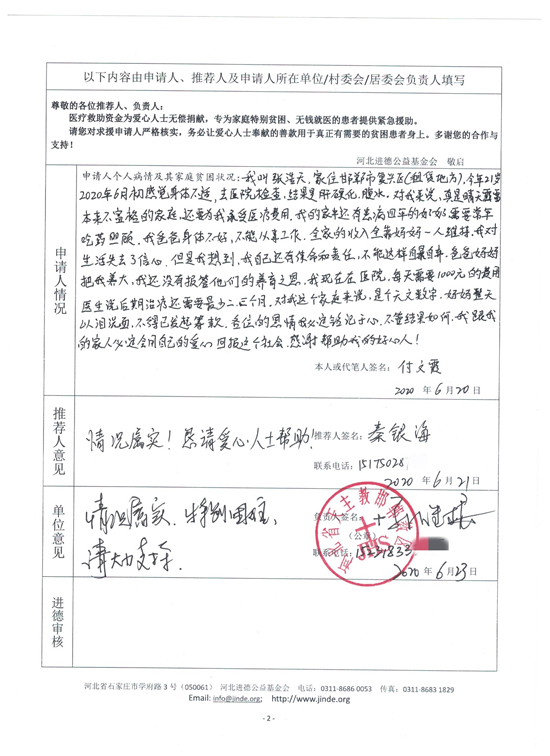 以下内容由申请人、推荐人及申请人所在单位/村委会/居委会负责人填写
尊敬的各位推荐人、负责人：
医疗救助资金为爱心人士无偿捐献，专为家庭特别贫困、无钱就医的患者提供紧急援助。
请您对求援申请人严格核实，务必让爱心人士奉献的善款用于真正有需要的贫困患者身上。多谢您的合作与
支持！
河北进德公益基金会 敬启
申请人情况
申请人个人病情及其家庭贫困状况：我叫张浩天，家住邯郸市复兴区(租赁地方)，今年21岁
2020年6月初感觉身体不适，去医院检查，结果是肝硬化，腹水。对我来说，真是晴天霹雳
本来不富裕的家庭，还要为我承受医疗费用，我的家里还有患病四年的奶奶需要常年
吃药照顾，我爸爸身体不好，不能从事工作。全家的收入全靠妈妈一人维持，我对
生活失去了信心，但是我想到，我自己还有使命和责任，不能这样自暴自弃，爸爸妈妈
把我养大，我还没有报答他们的养育之恩，我现在在医院，每天需要1000元的费用
医生说后期治疗还需要最少二、三个月，对我这个家庭来说，是个天文数字，妈妈整天
以泪洗面，不得已发起筹款，各位的恩情我必定铭记于心，不管结果如何，我跟我
的家人必定会用自己的爱心回报这个社会，感谢帮助我的好心人！
本人或代笔人签名：付文霞
2020 年 6 月 20 日
推荐人意见
情况属实！恳请爱心人士帮助！
推荐人签名：秦银海
联系电话：15175028
2020 年 6 月 21 日
单位意见
情况属实，特别困难，
请大力支持
负责人签名：
（公章）
联系电话：
河北省天主教邯郸教区
2020 年 6 月 23 日
进德审核
河北省石家庄市学府路 3 号（050061） 河北进德公益基金会 电话：0311-8686 0053 传真：0311-8683 1829
Email: info@jinde.org; http://www.jinde.org
- 2 -